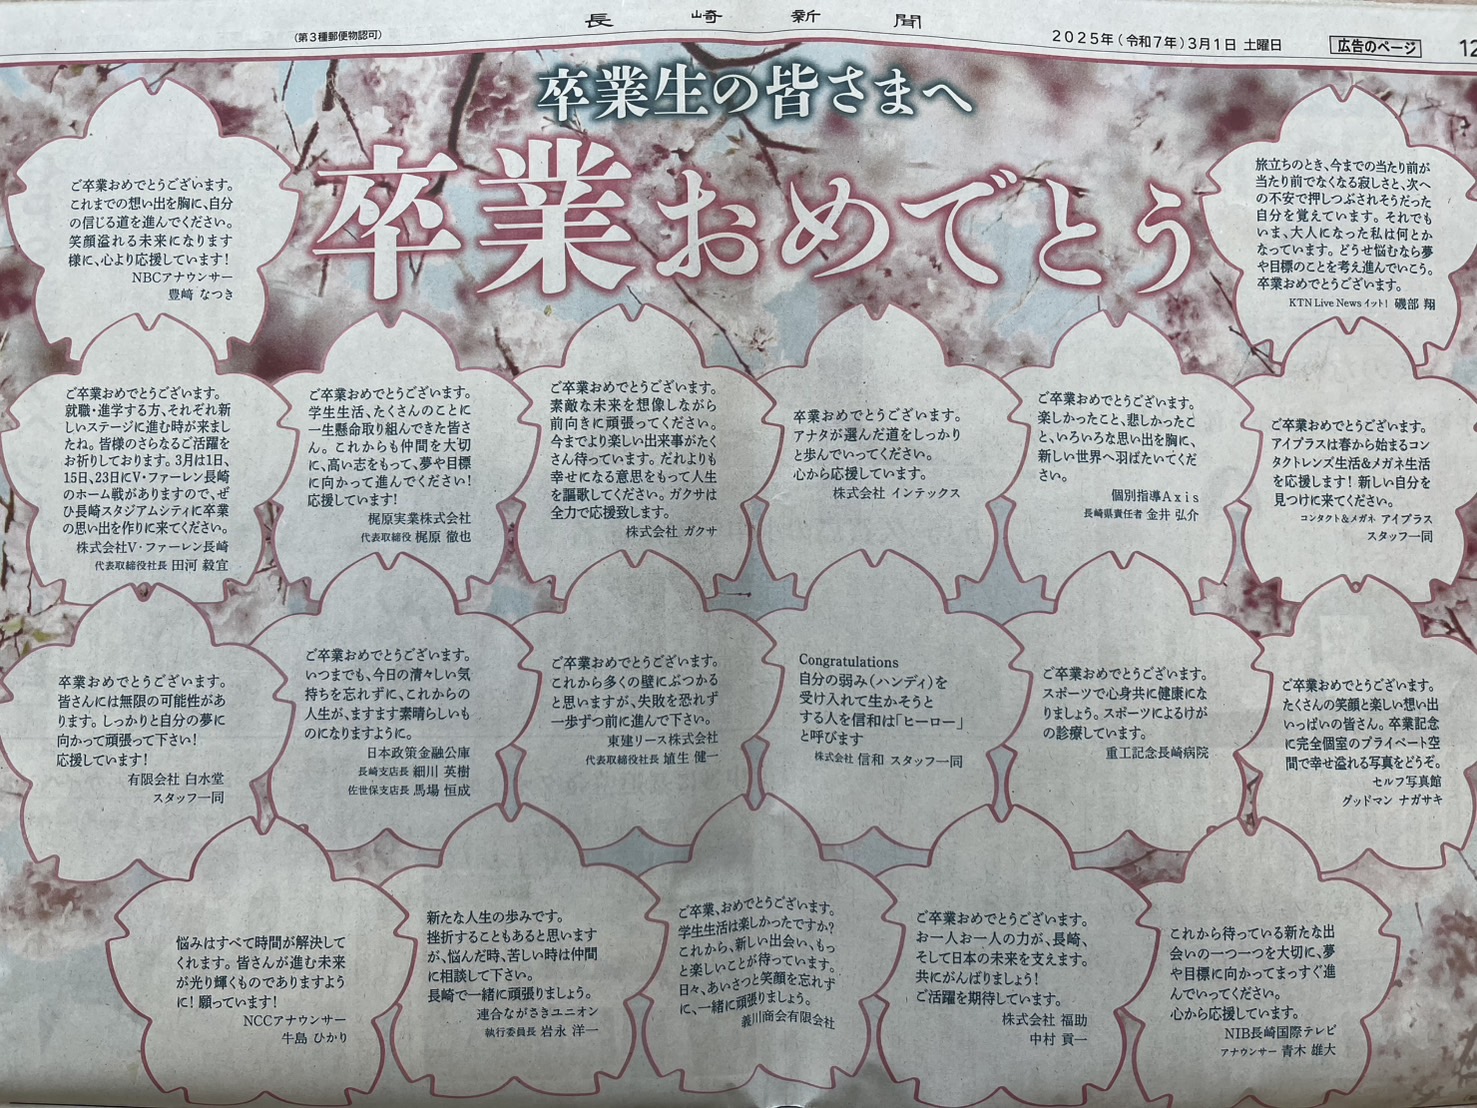 長崎新聞
(第3種郵便物認可)
2025年(令和7年)3月1日 土曜日
広告のページ
12
卒業生の皆さまへ
卒業おめでとう
ご卒業おめでとうございます。
これまでの想い出を胸に、自分
の信じる道を進んでください。
笑顔溢れる未来になります
様に、心より応援しています!
NBCアナウンサー
豊﨑 なつき
旅立ちのとき、今までの当たり前が
当たり前でなくなる寂しさと、次へ
の不安で押しつぶされそうだった
自分を覚えています。それでも
いま、大人になった私は何とか
なっています。どうせ悩むなら夢
や目標のことを考え進んでいこう。
卒業おめでとうございます。
KTN Live News イット! 磯部 翔
ご卒業おめでとうございます。
就職・進学する方、それぞれ新
しいステージに進む時が来まし
たね。皆様のさらなるご活躍を
お祈りしております。3月は1日、
15日、23日にV・ファーレン長崎
のホーム戦がありますので、ぜ
ひ長崎スタジアムシティに卒業
の思い出を作りに来てください。
株式会社V・ファーレン長崎
代表取締役社長 田河 毅宜
ご卒業おめでとうございます。
学生生活、たくさんのことに
一生懸命取り組んできた皆さ
ん。これからも仲間を大切
に、高い志をもって、夢や目標
に向かって進んでください!
応援しています!
梶原実業株式会社
代表取締役 梶原 徹也
ご卒業おめでとうございます。
素敵な未来を想像しながら
前向きに頑張ってください。
今までより楽しい出来事がたく
さん待っています。だれよりも
幸せになる意思をもって人生
を謳歌してください。ガクサは
全力で応援致します。
株式会社 ガクサ
卒業おめでとうございます。
アナタが選んだ道をしっかり
と歩んでいってください。
心から応援しています。
株式会社 インテックス
ご卒業おめでとうございます。
楽しかったこと、悲しかったこ
と、いろいろな思い出を胸に、
新しい世界へ羽ばたいてくだ
さい。
個別指導Axis
長崎県責任者 金井 弘介
ご卒業おめでとうございます。
アイプラスは春から始まるコン
タクトレンズ生活&メガネ生活
を応援します! 新しい自分を
見つけに来てください。
コンタクト&メガネ アイプラス
スタッフ一同
卒業おめでとうございます。
皆さんには無限の可能性があ
ります。しっかりと自分の夢に
向かって頑張って下さい!
応援しています!
有限会社 白水堂
スタッフ一同
ご卒業おめでとうございます。
いつまでも、今日の清々しい気
持ちを忘れずに、これからの
人生が、ますます素晴らしいも
のになりますように。
日本政策金融公庫
長崎支店長 細川 英樹
佐世保支店長 馬場 恒成
ご卒業おめでとうございます。
これから多くの壁にぶつかる
と思いますが、失敗を恐れず
一歩ずつ前に進んで下さい。
東建リース株式会社
代表取締役社長 埴生 健一
Congratulations
自分の弱み(ハンディ)を
受け入れて生かそうと
する人を信和は「ヒーロー」
と呼びます
株式会社 信和 スタッフ一同
ご卒業おめでとうございます。
スポーツで心身共に健康にな
りましょう。スポーツによるけが
の診療しています。
重工記念長崎病院
ご卒業おめでとうございます。
たくさんの笑顔と楽しい想い出
いっぱいの皆さん。卒業記念
に完全個室のプライベート空
間で幸せ溢れる写真をどうぞ。
セルフ写真館
グッドマン ナガサキ
悩みはすべて時間が解決して
くれます。皆さんが進む未来
が光り輝くものでありますよう
に! 願っています!
NCCアナウンサー
牛島 ひかり
新たな人生の歩みです。
挫折することもあると思います
が、悩んだ時、苦しい時は仲間
に相談して下さい。
長崎で一緒に頑張りましょう。
連合ながさきユニオン
執行委員長 岩永 洋一
ご卒業、おめでとうございます。
学生生活は楽しかったですか?
これから、新しい出会い、もっ
と楽しいことが待っています。
日々、あいさつと笑顔を忘れず
に、一緒に頑張りましょう。
義川商会有限会社
ご卒業おめでとうございます。
お一人お一人の力が、長崎、
そして日本の未来を支えます。
共にがんばりましょう!
ご活躍を期待しています。
株式会社 福助
中村 貢一
これから待っている新たな出
会いの一つ一つを大切に、夢
や目標に向かってまっすぐ進
んでいってください。
心から応援しています。
NIB長崎国際テレビ
アナウンサー 青木 雄大